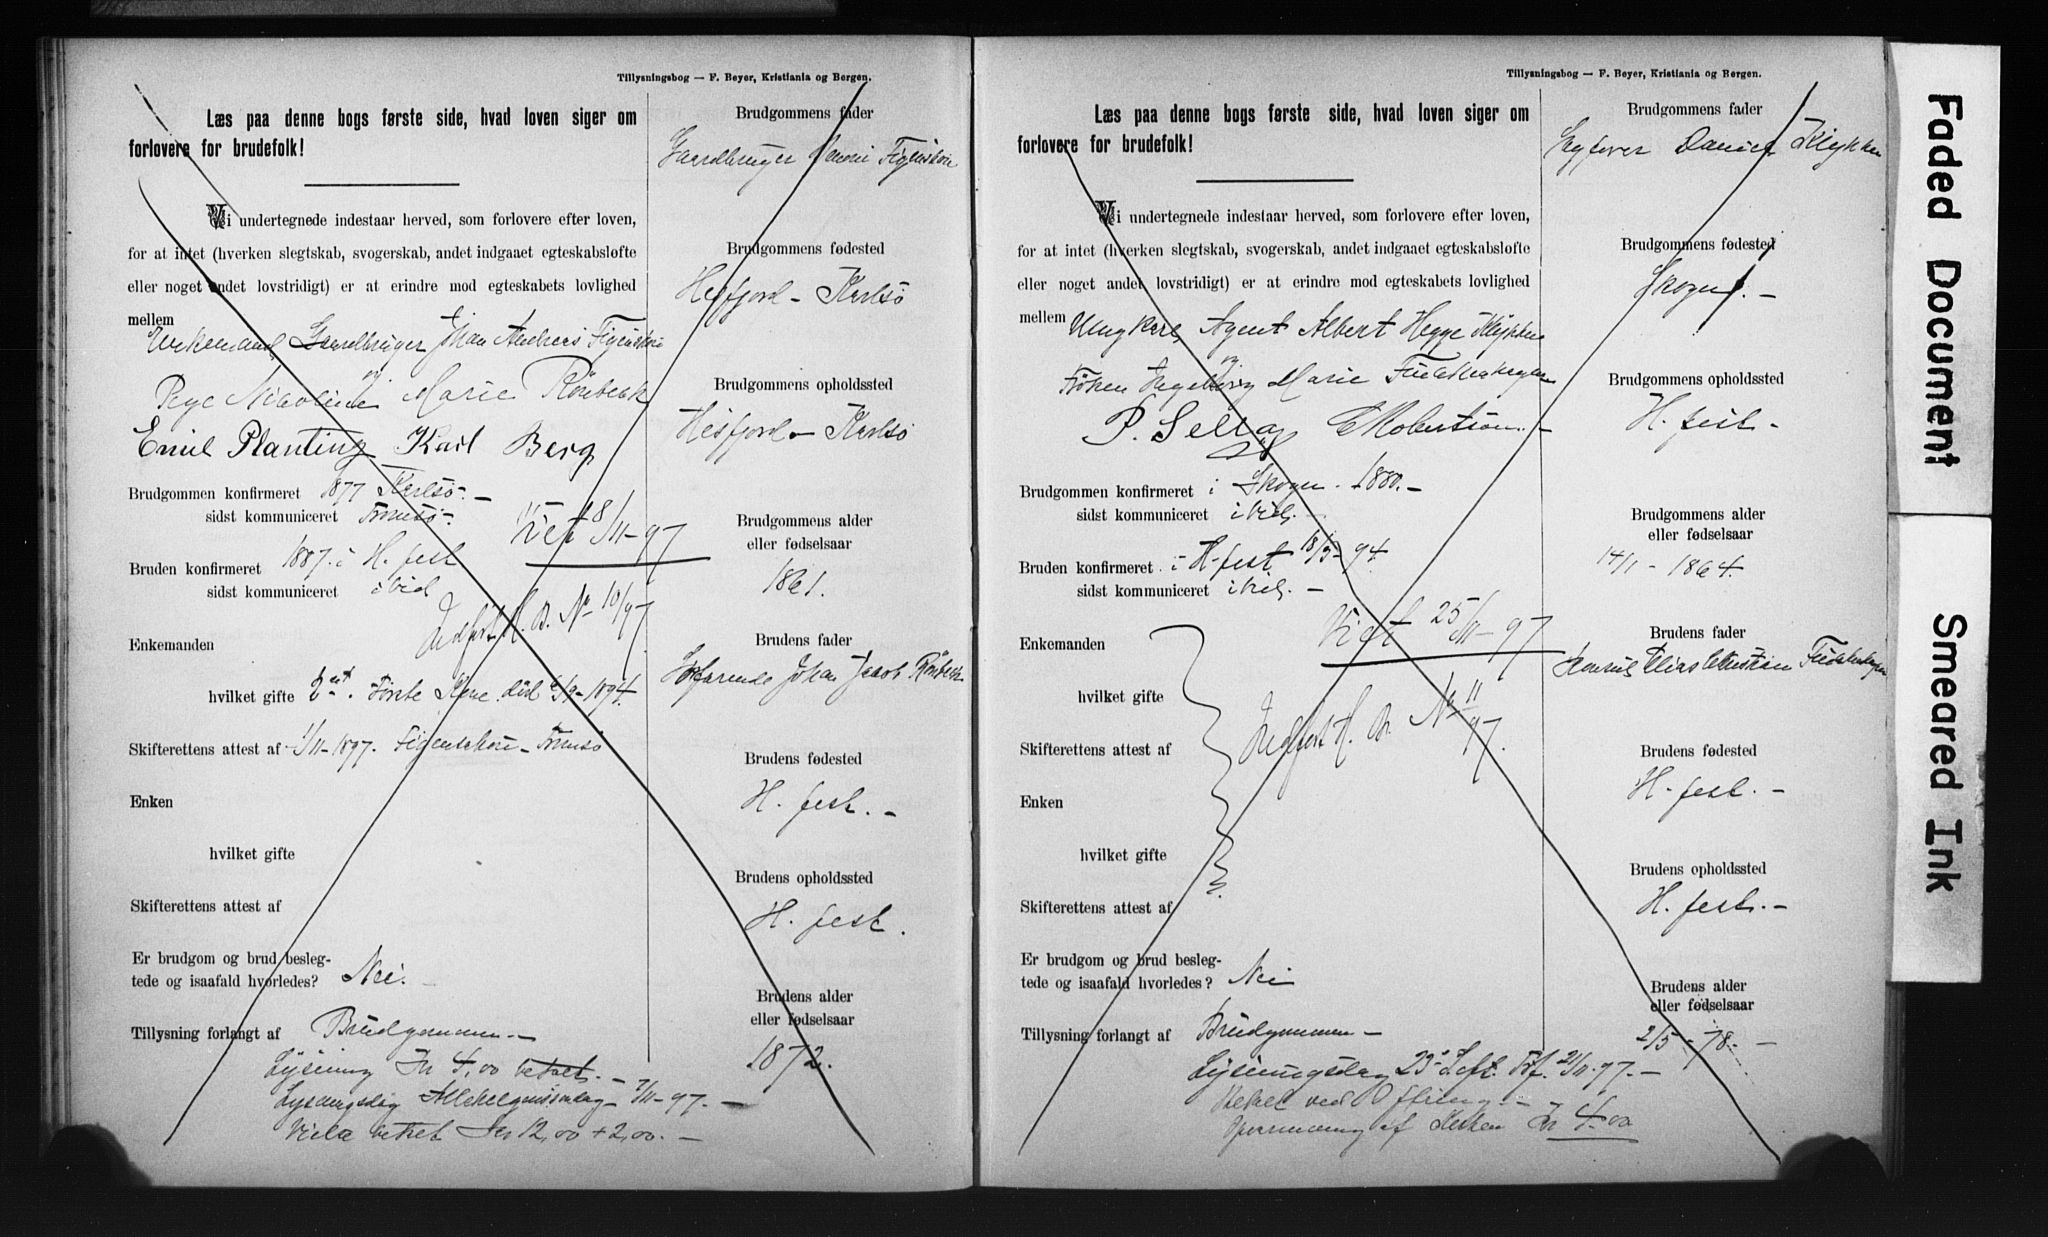 Tillysningsbog — F. Beyer, Kristiania og Bergen.
Læs paa denne bogs første side, hvad loven siger om
forlovere for brudefolk!
Vi undertegnede indestaar herved, som forlovere efter loven,
for at intet (hverken slegtskab, svogerskab, andet indgaaet egteskabsløfte
eller noget andet lovstridigt) er at erindre mod egteskabets lovlighed
mellem
Enkemand, Gaardbruger Johan Andreas Figenskou
og
Pige Nicoline Marie Rönbeck
Emil Planting Karl Berg
Brudgommen konfirmeret 1877 Karlsö. —
sidst kommuniceret Tromsö.
Viet 8/11-97
Bruden konfirmeret 1887. i H. fest
sidst kommuniceret ibid
Indført H. B. No 10/97
Enkemanden
hvilket gifte 2det. Første Kone död /9-1894.
Skifterettens attest af 1/11-1897. Figenschou - Tromsö
Enken
hvilket gifte
Skifterettens attest af
Er brudgom og brud besleg-
tede og isaafald hvorledes? Nei.
Tillysning forlangt af Brudgommen —
Lysning Kr 4,00 betalt. —
Lysningsdag Allehelgensdag 7/11-97. —
Vielse betalt Kr 12,00 + 2,00. —
Brudgommens fader
Gaardbruger Figenskou
Brudgommens fødested
Hesfjord - Karlsö
Brudgommens opholdssted
Hesfjord - Karlsö
Brudgommens alder
eller fødselsaar
1861.
Brudens fader
Johan Jacob Rönbeck
Brudens fødested
H. fest. —
Brudens opholdssted
H. fest.
Brudens alder
eller fødselsaar
1872.
Tillysningsbog — F. Beyer, Kristiania og Bergen.
Læs paa denne bogs første side, hvad loven siger om
forlovere for brudefolk!
Vi undertegnede indestaar herved, som forlovere efter loven,
for at intet (hverken slegtskab, svogerskab, andet indgaaet egteskabsløfte
eller noget andet lovstridigt) er at erindre mod egteskabets lovlighed
mellem
Ungkarl, Agent Albert Hegge Klykken
og
Frøken Ingeborg Marie Fuckenhagen
P. Sella C Robertson. —
Brudgommen konfirmeret i Skogn. 1880. —
sidst kommuniceret ibid. —
Bruden konfirmeret i H. fest 18/3-94.
sidst kommuniceret ibid. —
Viet 25/11-97
Enkemanden
hvilket gifte
Indført H. B. No 11/97.
Skifterettens attest af
Enken
hvilket gifte
Skifterettens attest af
Er brudgom og brud besleg-
tede og isaafald hvorledes? Nei
Tillysning forlangt af Brudgommen —
Lysningsdag 23de S. eft. Trf. 21/11.97. —
ved Offring. —
af Kirken Kr 4.00
Brudgommens fader
Daniel Klykken
Brudgommens fødested
Skogn. —
Brudgommens opholdssted
H. fest. —
Brudgommens alder
eller fødselsaar
14/1 - 1864.
Brudens fader
Konsul Elias Fuckenhagen
Brudens fødested
H. fest. —
Brudens opholdssted
H. fest. —
Brudens alder
eller fødselsaar
2/5 - 78. —
Faded Document
Smeared Ink